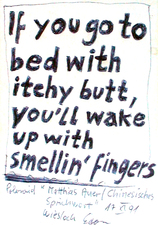 If you go to
bed with
itchy butt,
you'll wake
up with
smellin' fingers
Polaroid "Matthias Auer/Chinesisches
Sprichwort" 17
Wiesloch